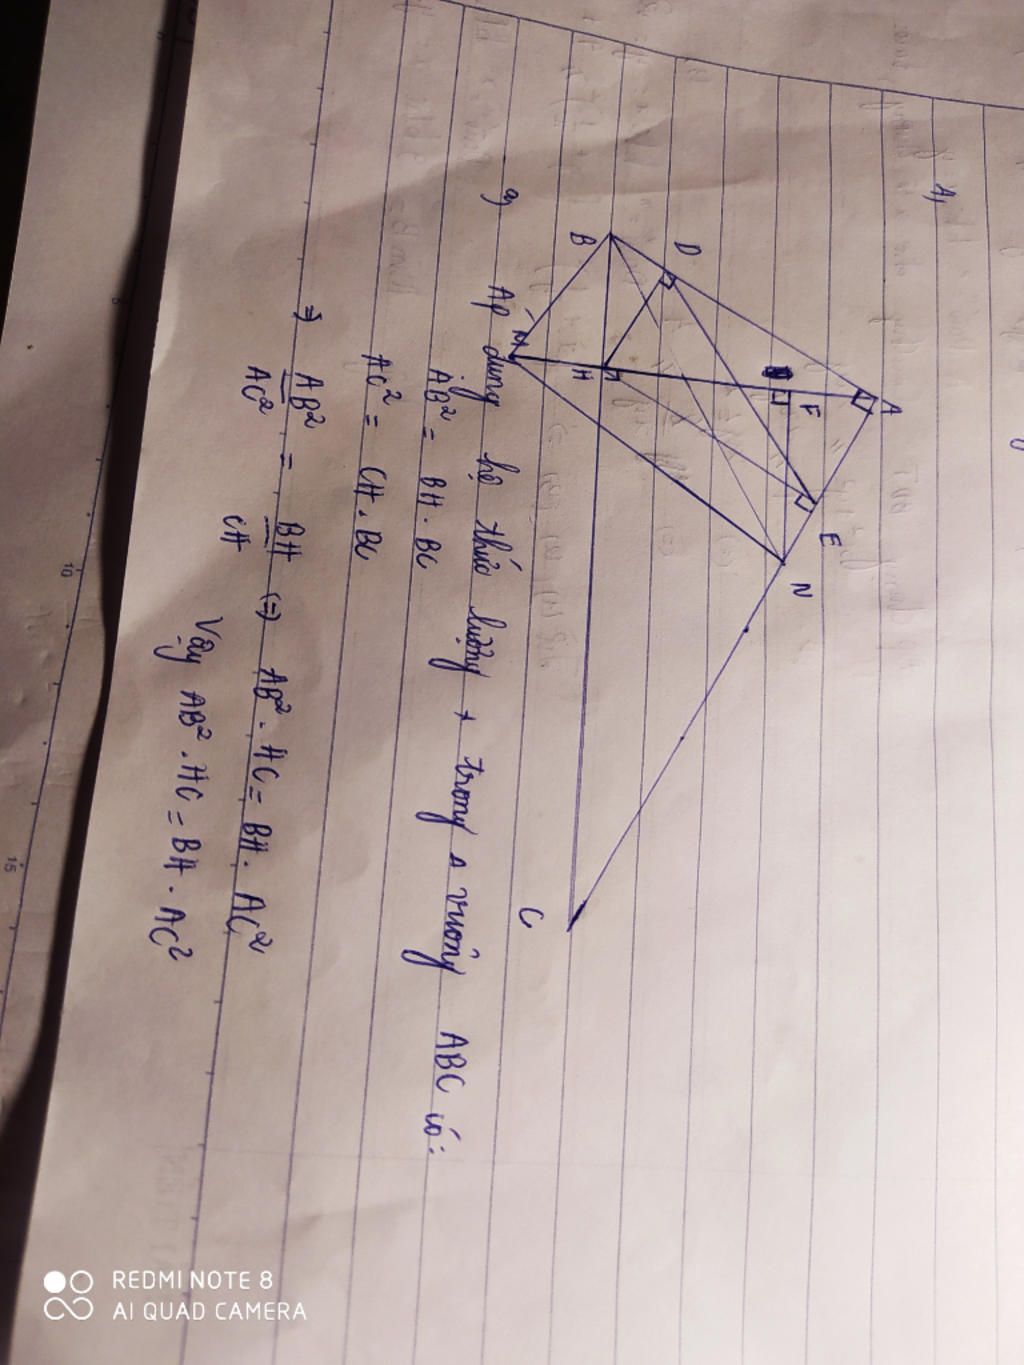 4,
A
F
E
D
N
B
H
M
C
a) Áp dụng hệ thức lượng + trong Δ vuông ABC có:
AB² = BH . BC
AC² = CH . BC
=> AB²/AC² = BH/CH (=) AB² . HC = BH . AC²
Vậy AB² . HC = BH . AC²
10
15
REDMI NOTE 8
AI QUAD CAMERA